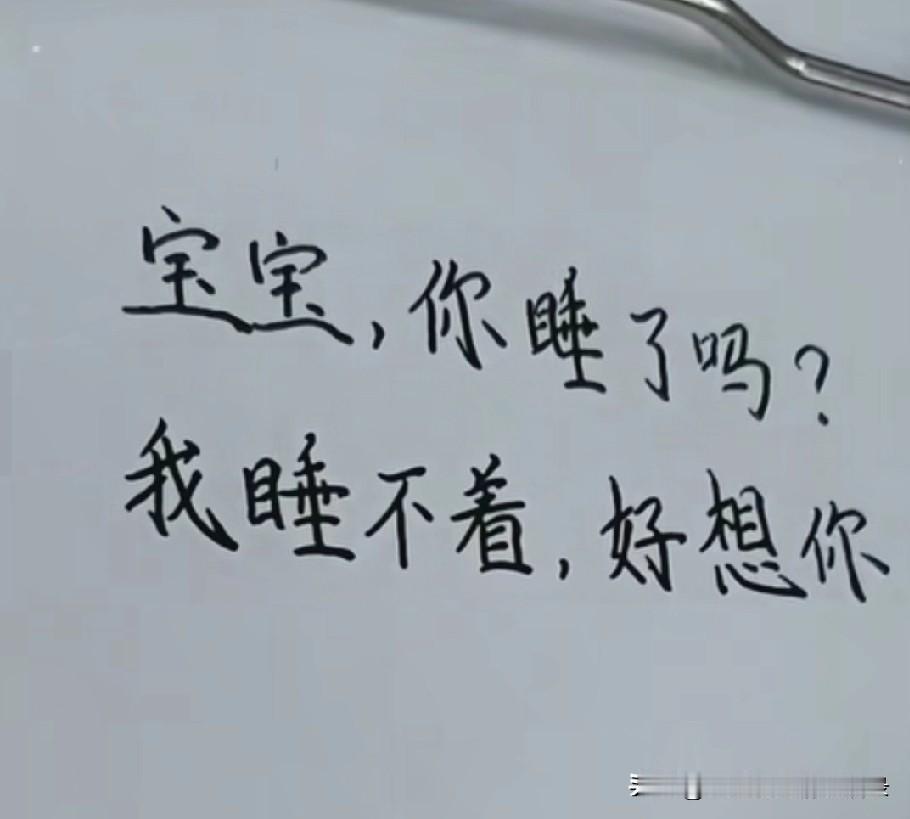 宝宝,你睡了吗?
我睡不着,好想你